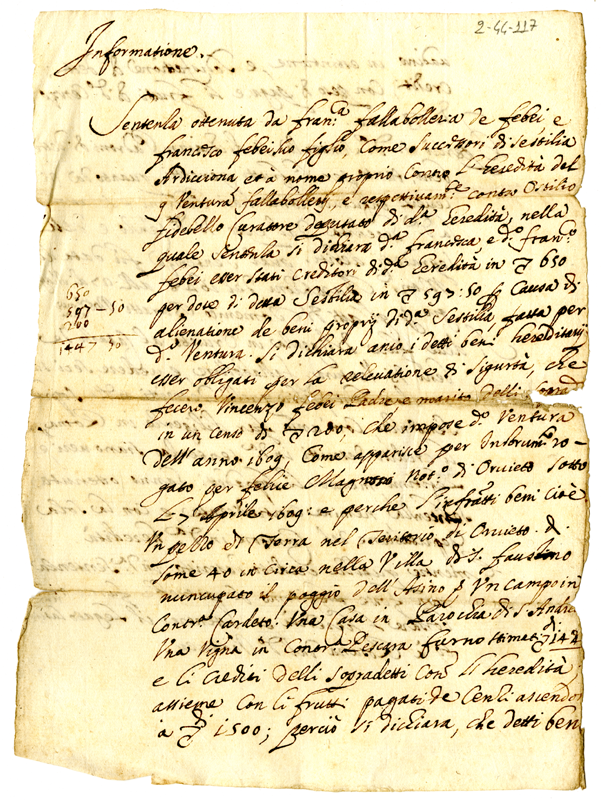 2-44-117
Informatione.
Sentenza ottenuta da Fran.ca Fallabolleria de Febei e
Francesco Febei suo figlio, come Successori di Sestilia
Ardicciona et à nome proprio Contro l'heredità del
q Ventura Fallabolleri, e respettivam.te contro Ostilio
Fidebello Curatore deputato di d.a Eredità, nella
quale Sentenza si dichiara d.a Francesca e d.o Fran.co
Febei esser stati Creditori di d.a Eredità in 650
per dote di detta Sestilia in 597:50 p Causa di
alienatione de beni proprij di d.a Sestilia fatta per
d.o Ventura. Si dichiara anco i detti beni hereditarij
esser obligati per la relevatione di Sigurtà, che
fecero Vincenzo Febei Padre e marito delli
in un Censo di 200, che impose d.o Ventura
dell'anno 1609. Come apparisce per Instrum.to ro-
gato per Felice Magnoro Not.o di Orvieto sotto
li 7 Aprile 1609: e perche l'infratti beni cioè
Un pezzo di Terra nel Territorio di Orvieto di
some 40 in circa nella Villa di S. Faustino
nuncupato il poggio dell'Asino Un campo in
Contr.a Cardeto. Una Casa in Parochia di S. Andre
Una Vigna in Contr.a Pescara furno stimati di 142
e li Crediti delli sopradetti Con.o l'heredità
assieme con li frutti pagati de Censi ascendo
à 1500; perciò si dichiara, che detti ben
650
597-50
200
1447 50